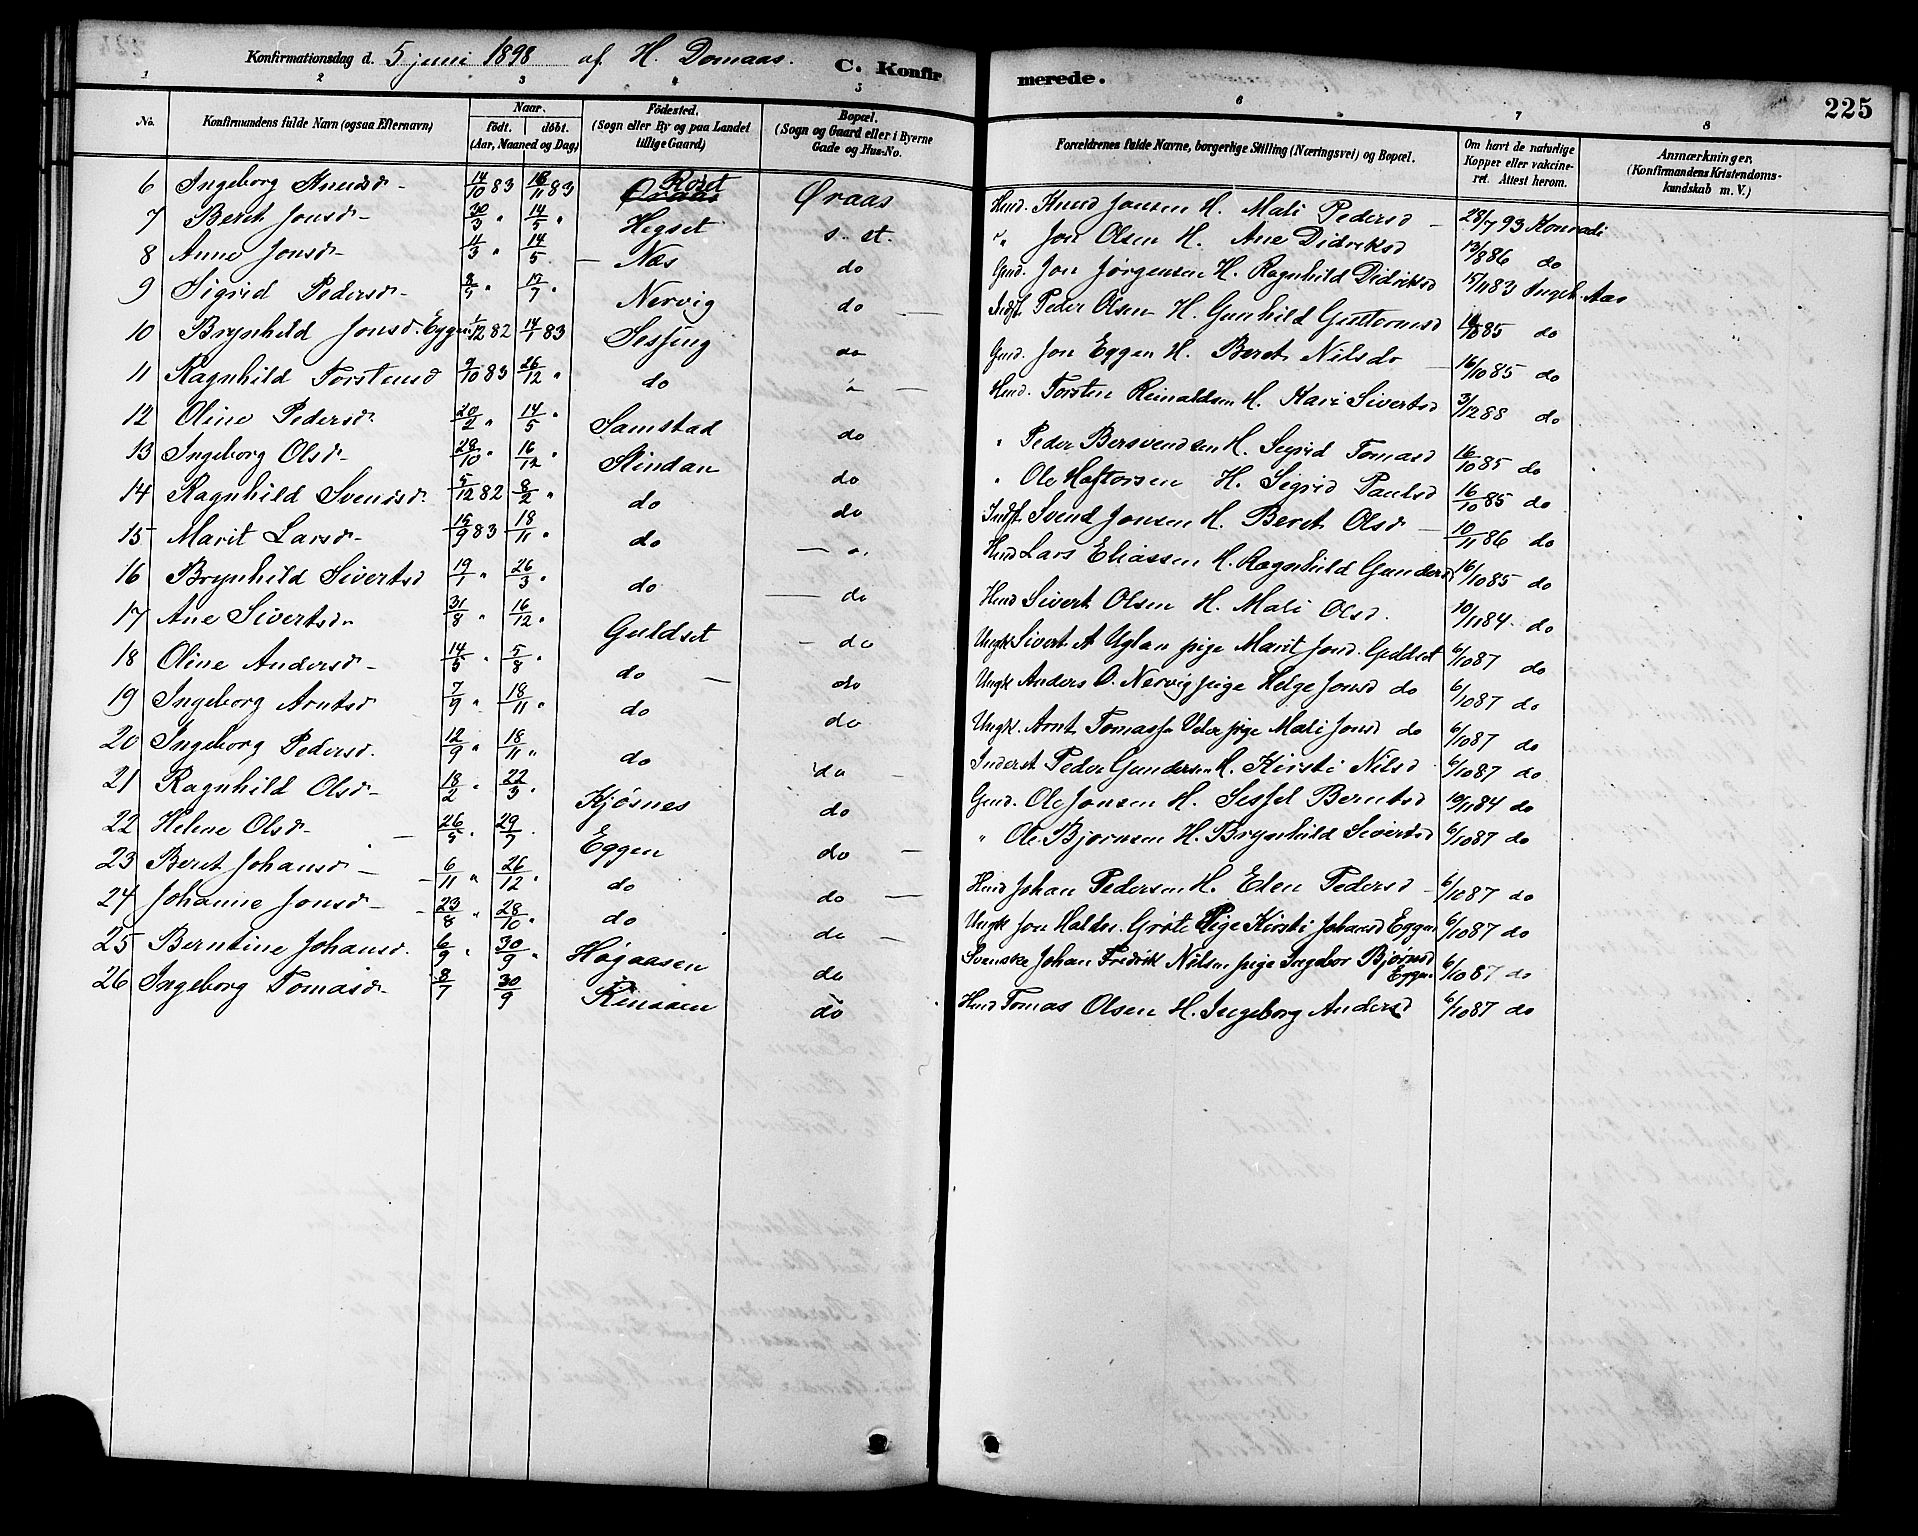 Konfirmationsdag d. 5 juni 1898 af H. Domaas. C. Konfirmerede. 225
1 2 3 4 5 6 7 8
No. Konfirmandens fulde Navn (ogsaa Efternavn) Naar. født. døbt. (Aar, Maaned og Dag) Fødested. (Sogn eller By og paa Landet tillige Gaard) Bopæl. (Sogn og Gaard eller i Byerne Gade og Hus-No. Forældrenes fulde Navne, borgerlige Stilling (Næringsvei) og Bopæl. Om havt de naturlige Kopper eller vakcineret. Attest herom. Anmærkninger. (Konfirmandens Kristendomskundskab m. V.)
6 Ingeborg Knudsd. 14/10 83 18/11 83 Øraas Roset Øraas Hmd. Knud Jonsen H. Mali Pedersd 28/7 93 Konradi
7 Beret Jonsd. 30/3 " 14/5 " Hegset s. st. " Jon Olsen H. Ane Didriksd 13/8 86 do
8 Anne Jonsd. 11/3 " 14/5 Næs do Gmd. Jon Jørgensen H. Ragnhild Didriksd 15/11 83 Ingeb. Aas
9 Sigrid Pedersd. 8/5 " 17/7 " Nervig do Indst. Peder Olsen H. Gunhild Guttormsd 85 do
10 Brynhild Jonsd. Eggen 1/12 82 14/1 83 Sessing do Gmd. Jon Eggen H. Beret Nilsd 16/10 85 do
11 Ragnhild Torstensd 9/10 83 26/12 " do " Hmd. Torsten Reinaldsen H. Kari Sivertsd 3/12 88 do
12 Oline Pedersd. 20/2 " 14/5 " Samstad do " Peder Bersvendsen H. Sigrid Tomasd 16/10 85 do
13 Ingeborg Olsd. 28/10 " 16/12 " Stindan do " Ole Haftorsen H. Sigrid Paulsd 16/10 85 do
14 Ragnhild Svendsd. 5/12 82 8/2 " do do Indst. Svend Jonsen H. Beret Olsd 10/11 86 do
15 Marit Larsd. 15/9 83 18/11 " do " Hmd Lars Eliassen H. Ragnhild Gundersd 16/10 85 do
16 Brynhild Sivertsd 19/1 " 26/3 " do do Hmd Sivert Olsen H. Mali Olsd. 10/11 84 do
17 Ane Sivertsd. 31/8 " 16/12 " Guldset do Ungk Sivert A Uglan pige Marit Jonsd. Guldset 6/10 87 do
18 Oline Andersd. 14/5 " 5/8 " do do Ungk Anders O. Nervig pige Helge Jonsd do 6/10 87 do
19 Ingeborg Arntsd 7/9 " 18/11 " do do Ungk. Arnt Tomass. pige Mali Jonsd do 6/10 87 do
20 Ingeborg Pedersd. 12/9 " 18/11 " do do Inderst Peder Gundersen H. Kirsti Nilsd 6/10 87 do
21 Ragnhild Olsd. 18/2 " 22/3 " Kjøsnes do Gmd. Ole Jonsen H. Sessel Berntsd 10/11 84 do
22 Helene Olsd. 26/5 " 29/7 " Eggen do " Ole Bjørnsen H. Brynhild Sivertsd 6/10 87 do
23 Beret Johansd. 6/11 " 26/12 " do do Hmd Johan Pedersen H. Elen Pedersd 6/10 87 do
24 Johanne Jonsd. 23/8 " 28/10 " do do Ungk Jon Haldo. Grøte Pige Kirsti Johansd Eggen 6/10 87 do
25 Berntine Johansd. 6/9 " 30/9 " Høgaasen do Svenske Johan Fridrik Nilsen pige Ingebor Bjørnsd Eggen 6/10 87 do
26 Ingeborg Tomasd. 8/7 30/9 Rinaaen do Hmd Tomas Olsen H. Ingeborg Andersd 6/10 87 do